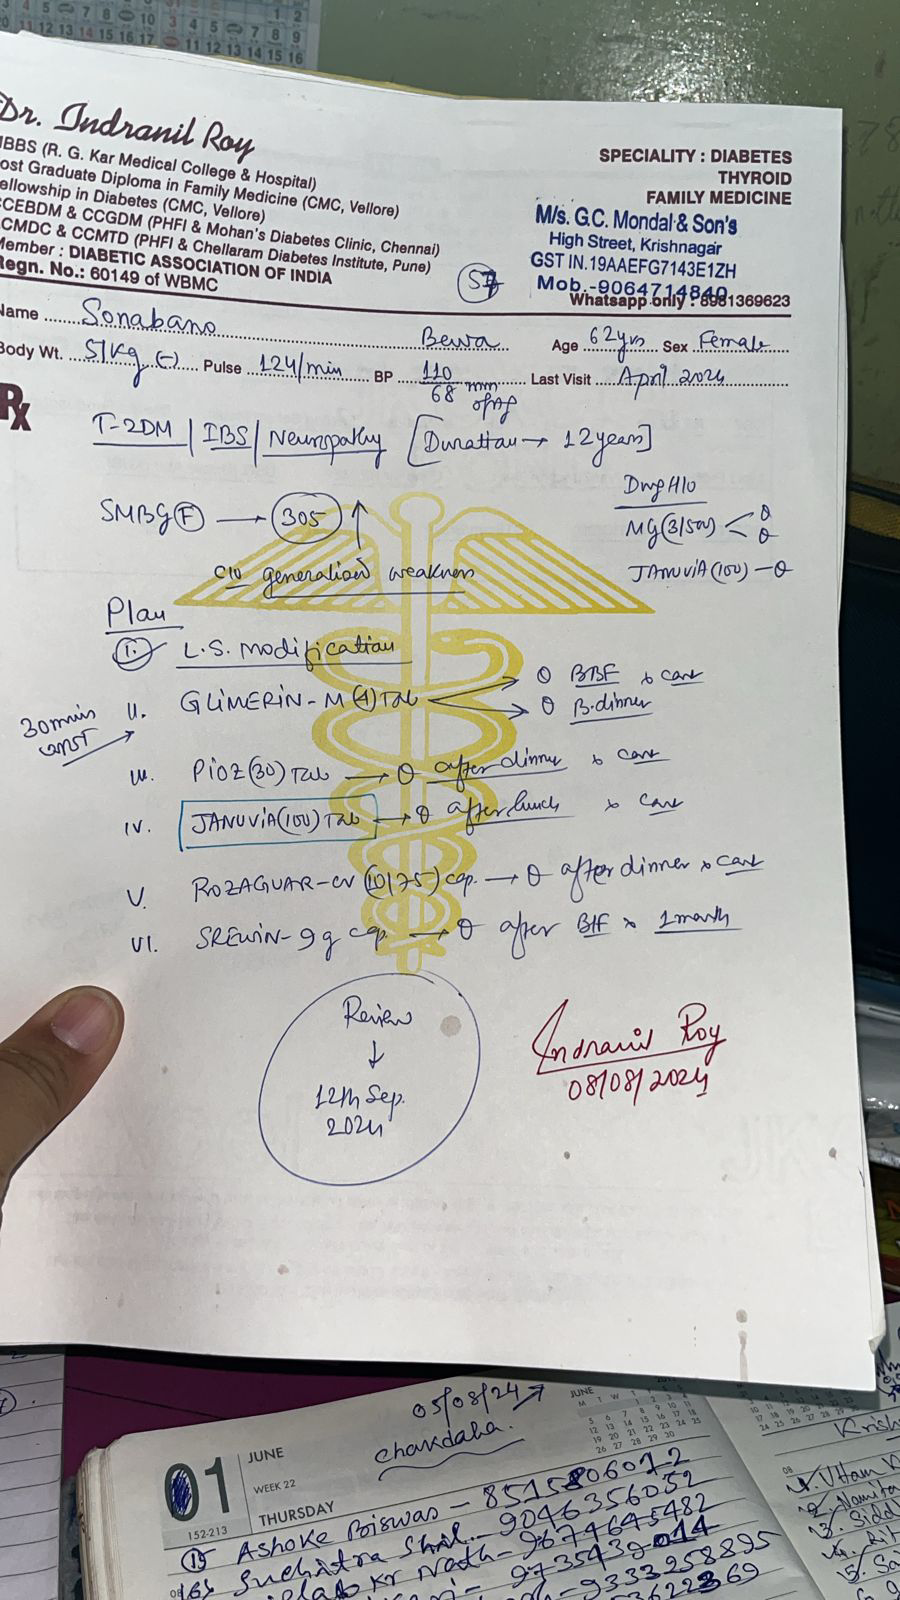 Dr. Indranil Roy
MBBS (R. G. Kar Medical College & Hospital)
Post Graduate Diploma in Family Medicine (CMC, Vellore)
Fellowship in Diabetes (CMC, Vellore)
CCEBDM & CCGDM (PHFI & Mohan's Diabetes Clinic, Chennai)
CMDC & CCMTD (PHFI & Chellaram Diabetes Institute, Pune)
Member : DIABETIC ASSOCIATION OF INDIA
Regn. No.: 60149 of WBMC
SPECIALITY : DIABETES
THYROID
FAMILY MEDICINE
M/s. G.C. Mondal & Son's
High Street, Krishnagar
GST IN.19AAEFG7143E1ZH
Mob.-9064714840
Whatsapp only : 8981369623
Name Sonabano Bewa Age 62yrs Sex Female
Body Wt. 51Kg (-) Pulse 124/min BP 110/68 mm of Hg Last Visit April 2024
Rx
T-2DM | IBS | Neuropathy [Durattau → 12 years]
Drug H/o
SMBG (F) → 305 ↑
MG (3/500)
JANUVIA (100) - θ
c/o generalised weakness
Plan
I. L.S. modification
II. GLIMERIN-M (4) Tab θ BBF x cont
θ B.dinner
30mins
III. PIOZ (30) Tab → θ after dinner x cont
IV. JANUVIA (100) Tab → θ after lunch x cont
V. ROZAGUAR-CV (10/75) cap. → θ after dinner x cont
VI. SREWIN-9g cap. → θ after B/F x 1 month
Review
↓
12th Sep.
2024
Indranil Roy
08/08/2024
05/08/24
Chakdaha.
01 JUNE
WEEK 22
THURSDAY
152-213
JUNE
Ashoke Biswas - 8515806072
Suchitra Shil - 9046356052
Nath - 9674645482
9735439014
9333258895